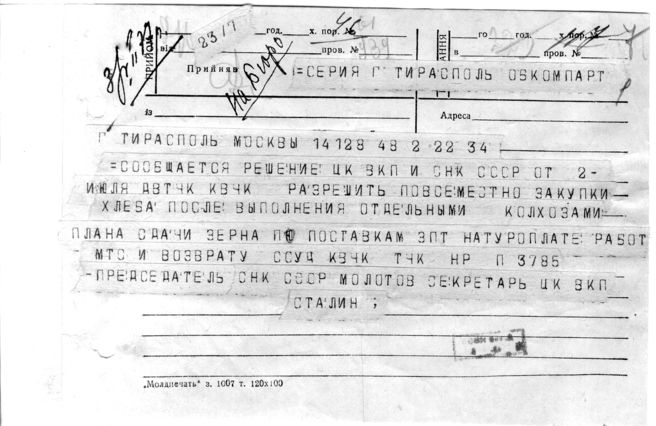 год. х. пор. 46 го год. х. пор.
ПРИЙОМ від пров. 2317 в пров.
Прийняв На Бюро
=СЕРИЯ Г ТИРАСПОЛЬ ОБКОМПАРТ
із Адреса
Г ТИРАСПОЛЬ МОСКВЫ 14128 48 2 22 34
=СООБЩАЕТСЯ РЕШЕНИЕ ЦК ВКП И СНК СССР ОТ 2-
ИЮЛЯ ДВТЧК КВЧК РАЗРЕШИТЬ ПОВСЕМЕСТНО ЗАКУПКИ
ХЛЕБА ПОСЛЕ ВЫПОЛНЕНИЯ ОТДЕЛЬНЫМИ КОЛХОЗАМИ
ПЛАНА СДАЧИ ЗЕРНА ПО ПОСТАВКАМ ЗПТ НАТУРОПЛАТЕ РАБОТ
МТС И ВОЗВРАТУ ССУД КВЧК ТЧК НР П 3785
-ПРЕДСЕДАТЕЛЬ СНК СССР МОЛОТОВ СЕКРЕТАРЬ ЦК ВКП
СТАЛИН ;
„Молдпечать" з. 1007 т. 120х100